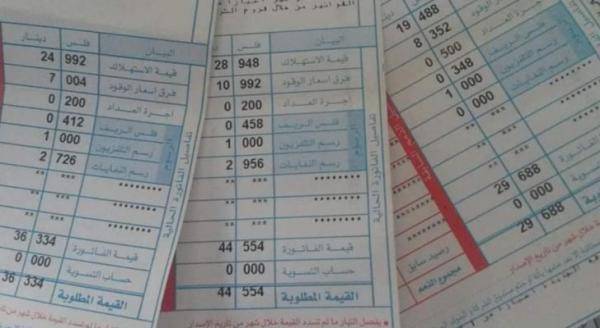 البيان فلس دينار
قيمة الاستهلاك 992 24
فرق أسعار الوقود 004 7
أجرة العداد 200 0
فلس الريف 412 0
رسم التلفزيون 000 1
رسم النفايات 726 2
******** *** **
******** *** **
******** *** **
قيمة الفاتورة 334 36
حساب التسوية 000 0
القيمة المطلوبة 334 36
الرسوم
تفاصيل الفاتورة الحالية
البيان فلس دينار
قيمة الاستهلاك 948 28
فرق أسعار الوقود 992 10
أجرة العداد 200 0
فلس الريف 458 0
رسم التلفزيون 000 1
رسم النفايات 956 2
******** *** **
******** *** **
******** *** **
قيمة الفاتورة 554 44
حساب التسوية 000 0
القيمة المطلوبة 554 44
الرسوم
تفاصيل الفاتورة الحالية
• يفصل التيار ما لم تسدد القيمة خلال شهر من تاريخ الإصدار
488 19
352 8
500 0
348 0
000 1
000 0
******** *** **
688 29
000 0
688 29
رصيد سابق
مجموع الدعم